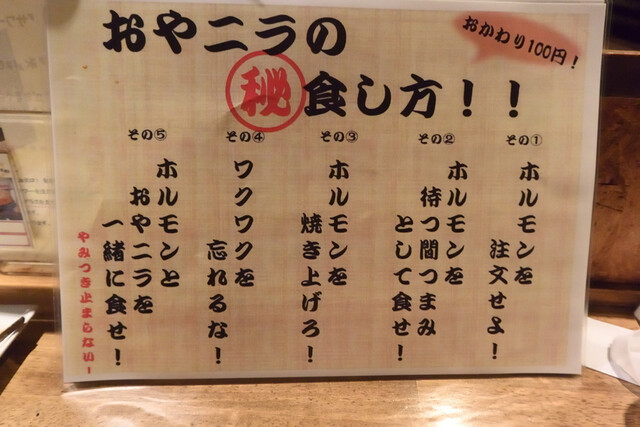 おやニラの
㊙食し方！！
おかわり100円！
その①
ホルモンを
注文せよ！
その②
ホルモンを
待つ間つまみ
として食せ！
その③
ホルモンを
焼き上げろ！
その④
ワクワクを
忘れるな！
その⑤
ホルモンと
おやニラを
一緒に食せ！
やみつき止まらないー